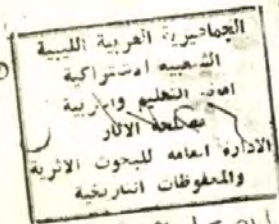 الجماهيرية العربية الليبية
الشعبيه الاشتراكية
امانة التعليم والتربية
مصلحة الاثار
الادارة العامه للبحوث الاثرية
والمحفوظات التاريخية